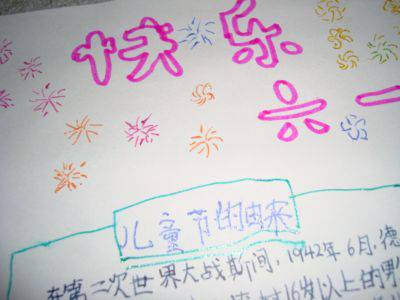 快乐
六一
儿童节的由来
在第二次世界大战期间，1942年6月，德
16岁以上的男